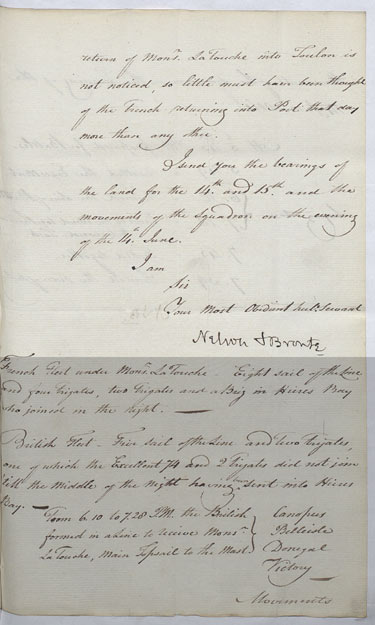 return of Monr. La Touche into Toulon is
not noticed, so little must have been thought
of the French returning into Port that day
more than any other.
I send you the bearings of
the land for the 14th. and 15th. and the
movements of the Squadron on the evening
of the 14th. June.
I am
Sir
Your Most Obedient humb: Servant
Nelson & Bronte
French Fleet under Monr. La Touche. Eight sail of the Line
and four frigates, two frigates and a Brig in Hieres Bay
who joined in the night. —
British Fleet - Five sail of the Line and two frigates,
one of which the Excellent 74 and 2 frigates did not join
till the Middle of the Night having been sent into Hieres
Bay. —
From 6.10 to 7.28 PM. the British
formed in a Line to receive Monr.
La Touche, Main Topsail to the Mast
Canopus
Belleisle
Donegal
Victory
Movements